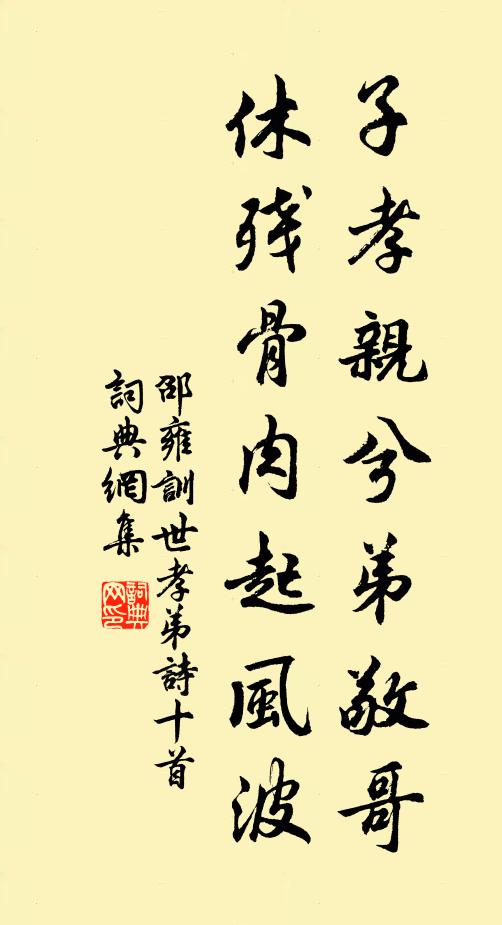 子孝親兮弟敬哥
休殘骨肉起風波
邵雍訓世孝弟詩十首
詞典網集
詞典
网印